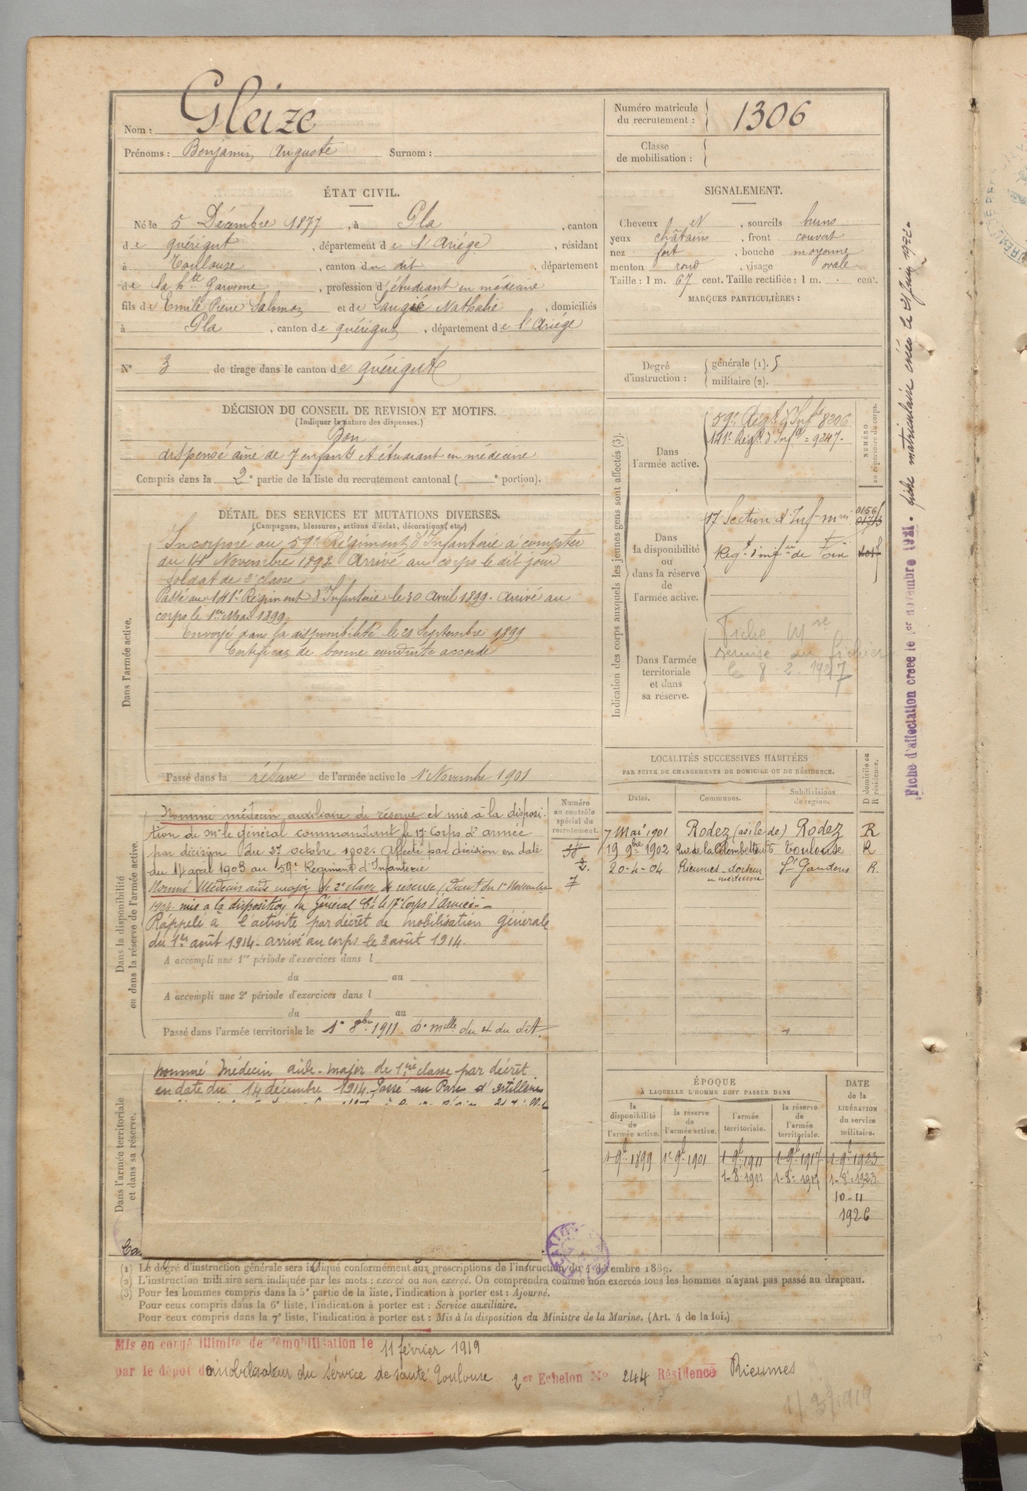 Nom : Gleize
Prénoms : Benjamin, Auguste Surnom :
Numéro matricule du recrutement : 1306
Classe de mobilisation :
ÉTAT CIVIL.
Né le 5 Décembre 1877, à Pla, canton
de quérigut, département de l'Ariége, résidant
à Toulouse, canton du dit, département
de la hte Garonne, profession d'étudiant en médecine
fils de Emile Pierre Salomon et de Nathalie, domiciliés
à Pla, canton de quérigut, département de l'Ariége
N° 3 de tirage dans le canton de quérigut
SIGNALEMENT.
Cheveux et, sourcils bruns
yeux châtains, front couvert
nez fort, bouche moyenne
menton rond, visage ovale
Taille : 1 m. 67 cent. Taille rectifiée : 1 m. cent.
MARQUES PARTICULIÈRES :
Degré d'instruction : générale (1). 5
militaire (2).
DÉCISION DU CONSEIL DE REVISION ET MOTIFS.
(Indiquer la nature des dispenses.)
Bon
dispensé aîné de 7 enfants et étudiant en médecine
Compris dans la 2e partie de la liste du recrutement cantonal ( e portion).
DÉTAIL DES SERVICES ET MUTATIONS DIVERSES.
(Campagnes, blessures, actions d'éclat, décorations, etc.)
Dans l'armée active.
Incorporé au 59e Régiment d'Infanterie à compter
du Novembre 1898 Arrivé au corps le dit jour
soldat de 2e classe
Passé au 141e Régiment d'Infanterie le 30 Avril 1899. Arrivé au
corps le 1er Mai 1899
Envoyé dans la disponibilité le 20 Septembre 1899
Certificat de bonne conduite accordé
Passé dans la réserve de l'armée active le 1 Novembre 1901
Indication des corps auxquels les jeunes gens sont affectés (3).
NUMÉRO
Dans l'armée active.
59e Regt d'Infie 8306
141e Regt d'Infie = 9247.
Dans la disponibilité ou dans la réserve de l'armée active.
17 Section d'Inf mres 0156
Regt d'infie de
Dans l'armée territoriale et dans sa réserve.
Fiche Mle
remise au fichier
le 8 2. 1927
Fiche d'affectation créée le 1er novembre 1921. fiche matriculaire créée le juin 1922.
LOCALITÉS SUCCESSIVES HABITÉES
PAR SUITE DE CHANGEMENTS DE DOMICILE OU DE RÉSIDENCE.
Dates. Communes. Subdivisions de région. D domicile ou R résidence.
7 Mai 1901 Rodez (asile de) Rodez R
19 9bre 1902 Rue de la Colombette Toulouse R
20-4-04 Rieumes - docteur en médecine St Gaudens R.
Numéro au contrôle spécial du recrutement.
Dans la disponibilité ou dans la réserve de l'armée active.
Nommé médecin auxiliaire de réserve et mis à la disposi-
tion de Mr le Général commandant le 17e Corps d'armée
par décision du 27 octobre 1902. Affecté par décision en date
du 14 avril 1903 au 59e Régiment d'Infanterie
Nommé Médecin aide major de 2e classe de réserve (Décret du 1er Novembre
mis à la disposition du Général Ct le 17e Corps d'Armée. -
Rappelé à l'activité par décret de mobilisation générale
du 1er août 1914. arrivé au corps le 2 août 1914.
A accompli une 1re période d'exercices dans l
du au
A accompli une 2e période d'exercices dans l
du au
Passé dans l'armée territoriale le 1er 8bre 1911
Dans l'armée territoriale et dans sa réserve.
nommé Médecin aide-major de 1ère classe par décret
en date du 14 décembre 1914. Passé au Parc d'artillerie
ÉPOQUE
À LAQUELLE L'HOMME DOIT PASSER DANS
la disponibilité de l'armée active. la réserve de l'armée active. l'armée territoriale. la réserve de l'armée territoriale. DATE de la LIBÉRATION du service militaire.
1-9b 1899 1er 9b 1901 1-9b 1911 1-9b 1917 1-9b 1923
1-8b 1911 1-8b 1917 1-8b 1923
10-11
1926
(1) Le degré d'instruction générale sera indiqué conformément aux prescriptions de l'instruction du 4 décembre 1889.
(2) L'instruction militaire sera indiquée par les mots : exercé ou non exercé. On comprendra comme non exercés tous les hommes n'ayant pas passé au drapeau.
(3) Pour les hommes compris dans la 5e partie de la liste, l'indication à porter est : Ajourné.
Pour ceux compris dans la 6e liste, l'indication à porter est : Service auxiliaire.
Pour ceux compris dans la 7e liste, l'indication à porter est : Mis à la disposition du Ministre de la Marine. (Art. 4 de la loi.)
Mis en congé illimité de démobilisation le 11 février 1919
par le dépôt démobilisateur du service de santé Toulouse 2er Echelon N° 244 Résidence Rieumes